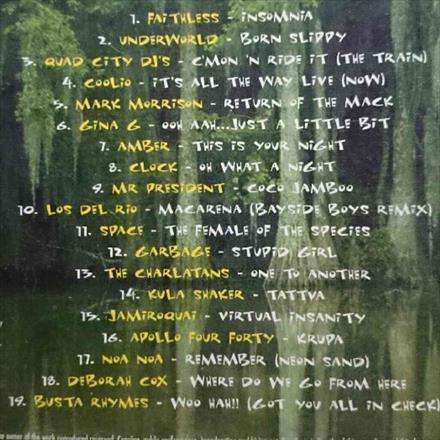 1. FAITHLESS - INSOMNIA
2. UNDERWORLD - BORN SLIPPY
3. QUAD CITY DJ'S - C'MON 'N RIDE IT (THE TRAIN)
4. COOLIO - IT'S ALL THE WAY LIVE (NOW)
5. MARK MORRISON - RETURN OF THE MACK
6. GINA G - OOH AAH...JUST A LITTLE BIT
7. AMBER - THIS IS YOUR NIGHT
8. CLOCK - OH WHAT A NIGHT
9. MR PRESIDENT - COCO JAMBOO
10. LOS DEL RIO - MACARENA (BAYSIDE BOYS REMIX)
11. SPACE - THE FEMALE OF THE SPECIES
12. GARBAGE - STUPID GIRL
13. THE CHARLATANS - ONE TO ANOTHER
14. KULA SHAKER - TATTVA
15. JAMIROQUAI - VIRTUAL INSANITY
16. APOLLO FOUR FORTY - KRUPA
17. NOA NOA - REMEMBER (NEON SAND)
18. DEBORAH COX - WHERE DO WE GO FROM HERE
19. BUSTA RHYMES - WOO HAH!! (GOT YOU ALL IN CHECK)